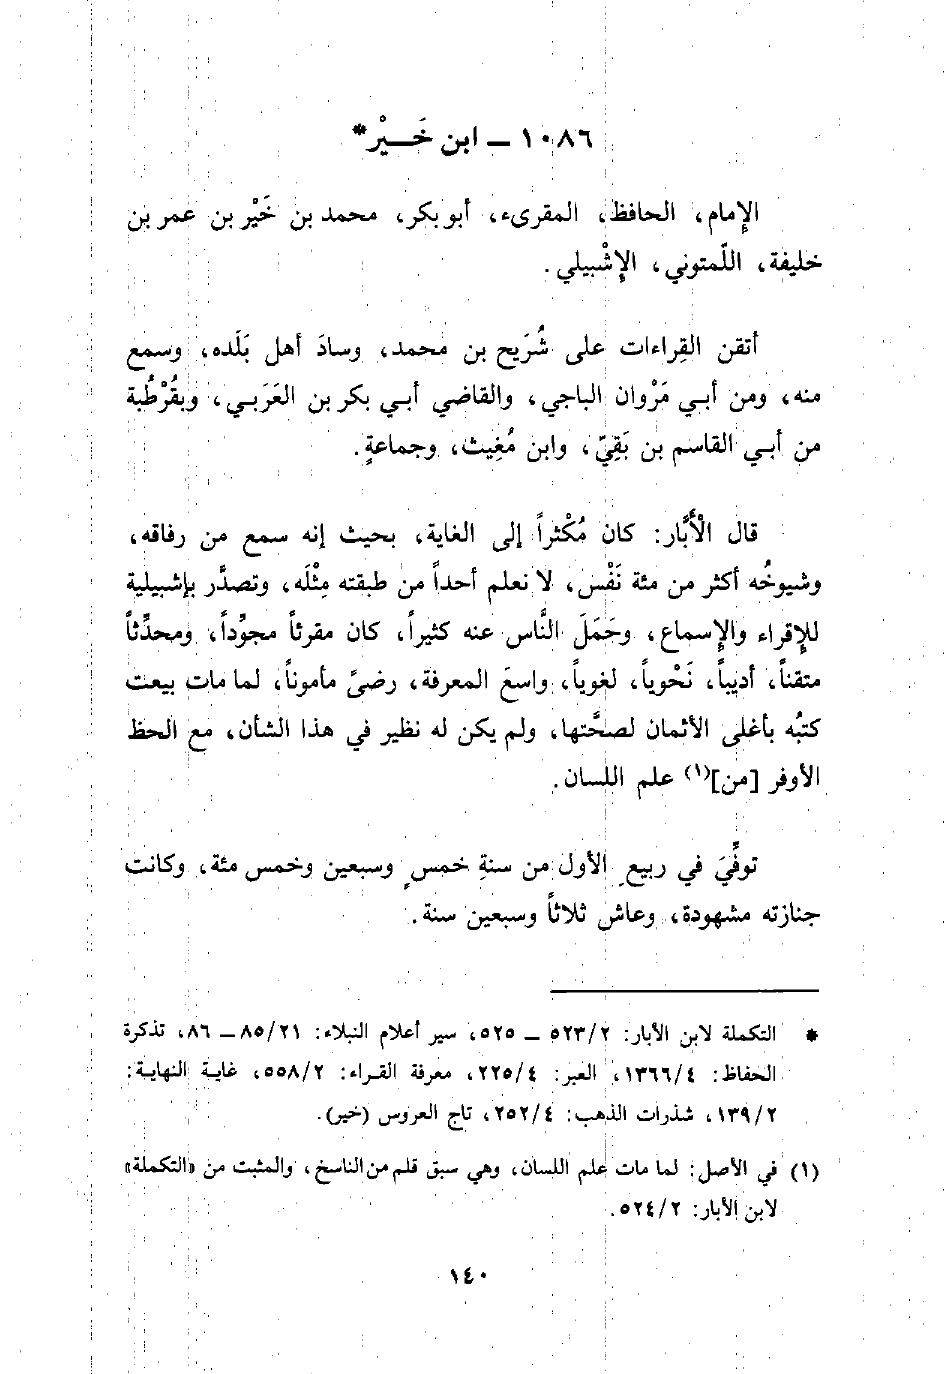 ١٠٨٦ ــ ابن خَــيْر*
الإِمام، الحافظ، المقرىء، أبو بكر، محمد بن خَيْر بن عمر بن
خليفة، اللَّمتوني، الإِشْبيلي.
أتقن القِراءات على شُرَيح بن محمد، وسادَ أهل بَلَده، وسمع
منه، ومن أبي مَرْوان الباجي، والقاضي أبي بكر بن العَرَبي، وبقُرْطُبة
من أبي القاسم بن بَقِيّ، وابن مُغِيث، وجماعةٍ.
قال الْأَبَّار: كان مُكْثراً إلى الغاية، بحيث إنه سمع من رفاقه،
وشيوخُه أكثر من مئة نَفْس، لا نعلم أحداً من طبقته مِثْلَه، وتصدَّر بإشبيلية
للإِقراء والإِسماع، وحَمَلَ النَّاس عنه كثيراً، كان مقرئاً مجوِّداً، ومحدِّثاً
متقناً، أديباً، نَحْوياً، لغوياً، واسعَ المعرفة، رضىً مأموناً، لما مات بيعت
كتبُه بأغلى الأثمان لصحَّتها، ولم يكن له نظير في هذا الشأن، مع الحظ
الأوفر [من]⁽١⁾ علم اللسان.
توفِّيَ في ربيعٍ الأول من سنةِ خمسٍ وسبعين وخمس مئة، وكانت
جنازته مشهودة، وعاش ثلاثاً وسبعين سنة.
* التكملة لابن الأبار: ٥٢٣/٢ ــ ٥٢٥، سير أعلام النبلاء: ٨٥/٢١ ــ ٨٦، تذكرة
الحفاظ: ١٣٦٦/٤، العبر: ٢٢٥/٤، معرفة القراء: ٥٥٨/٢، غاية النهاية:
١٣٩/٢، شذرات الذهب: ٢٥٢/٤، تاج العروس (خير).
(١) في الأصل: لما مات علم اللسان، وهي سبق قلم من الناسخ، والمثبت من «التكملة»
لابن الأبار: ٥٢٤/٢.
١٤٠